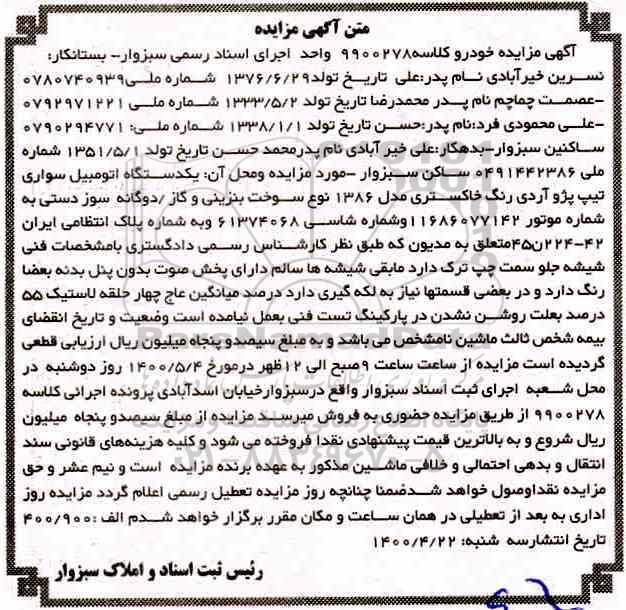 متن آگهی مزایده
آگهی مزایده خودرو کلاسه ۹۹۰۰۲۷۸ واحد اجرای اسناد رسمی سبزوار- بستانکار:
نسرین خیرآبادی نام پدر:علی تاریخ تولد۱۳۷۶/۶/۲۹ شماره ملی۰۷۸۰۷۴۰۹۳۹
-عصمت چماچم نام پدر محمدرضا تاریخ تولد ۱۳۳۳/۵/۲ شماره ملی ۰۷۹۲۹۷۱۲۲۱
-علی محمودی فرد:نام پدر:حسن تاریخ تولد ۱۳۳۸/۱/۱ شماره ملی: ۰۷۹۰۲۹۴۷۷۱
ساکنین سبزوار-بدهکار:علی خیر آبادی نام پدرمحمد حسن تاریخ تولد ۱۳۵۱/۵/۱ شماره
ملی ۰۴۹۱۴۴۲۳۸۶ ساکن سبزوار -مورد مزایده ومحل آن: یکدستگاه اتومبیل سواری
تیپ پژو آردی رنگ خاکستری مدل ۱۳۸۶ نوع سوخت بنزینی و گاز /دوگانه سوز دستی به
شماره موتور ۱۱۶۸۶۰۷۷۱۴۲وشماره شاسی ۶۱۳۷۴۰۶۸ وبه شماره پلاک انتظامی ایران
۴۲-۲۲۴ن۴۵متعلق به مدیون که طبق نظر کارشناس رسمی دادگستری بامشخصات فنی
شیشه جلو سمت چپ ترک دارد مابقی شیشه ها سالم دارای پخش صوت بدون پنل بدنه بعضا
رنگ دارد و در بعضی قسمتها نیاز به لکه گیری دارد درصد میانگین عاج چهار حلقه لاستیک ۵۵
درصد بعلت روشن نشدن در پارکینگ تست فنی بعمل نیامده است وضعیت و تاریخ انقضای
بیمه شخص ثالث ماشین نامشخص می باشد و به مبلغ سیصدو پنجاه میلیون ریال ارزیابی قطعی
گردیده است مزایده از ساعت ساعت ۹صبح الی ۱۲ظهر درمورخ ۱۴۰۰/۵/۴ روز دوشنبه در
محل شعبه اجرای ثبت اسناد سبزوار واقع درسبزوارخیابان اسدآبادی پرونده اجرائی کلاسه
۹۹۰۰۲۷۸ از طریق مزایده حضوری به فروش میرسد مزایده از مبلغ سیصدو پنجاه میلیون
ریال شروع و به بالاترین قیمت پیشنهادی نقدا فروخته می شود و کلیه هزینه‌های قانونی سند
انتقال و بدهی احتمالی و خلافی ماشین مذکور به عهده برنده مزایده است و نیم عشر و حق
مزایده نقداوصول خواهد شدضمنا چنانچه روز مزایده تعطیل رسمی اعلام گردد مزایده روز
اداری به بعد از تعطیلی در همان ساعت و مکان مقرر برگزار خواهد شدم الف :۴۰۰/۹۰۰
تاریخ انتشارسه شنبه: ۱۴۰۰/۴/۲۲
رئیس ثبت اسناد و املاک سبزوار